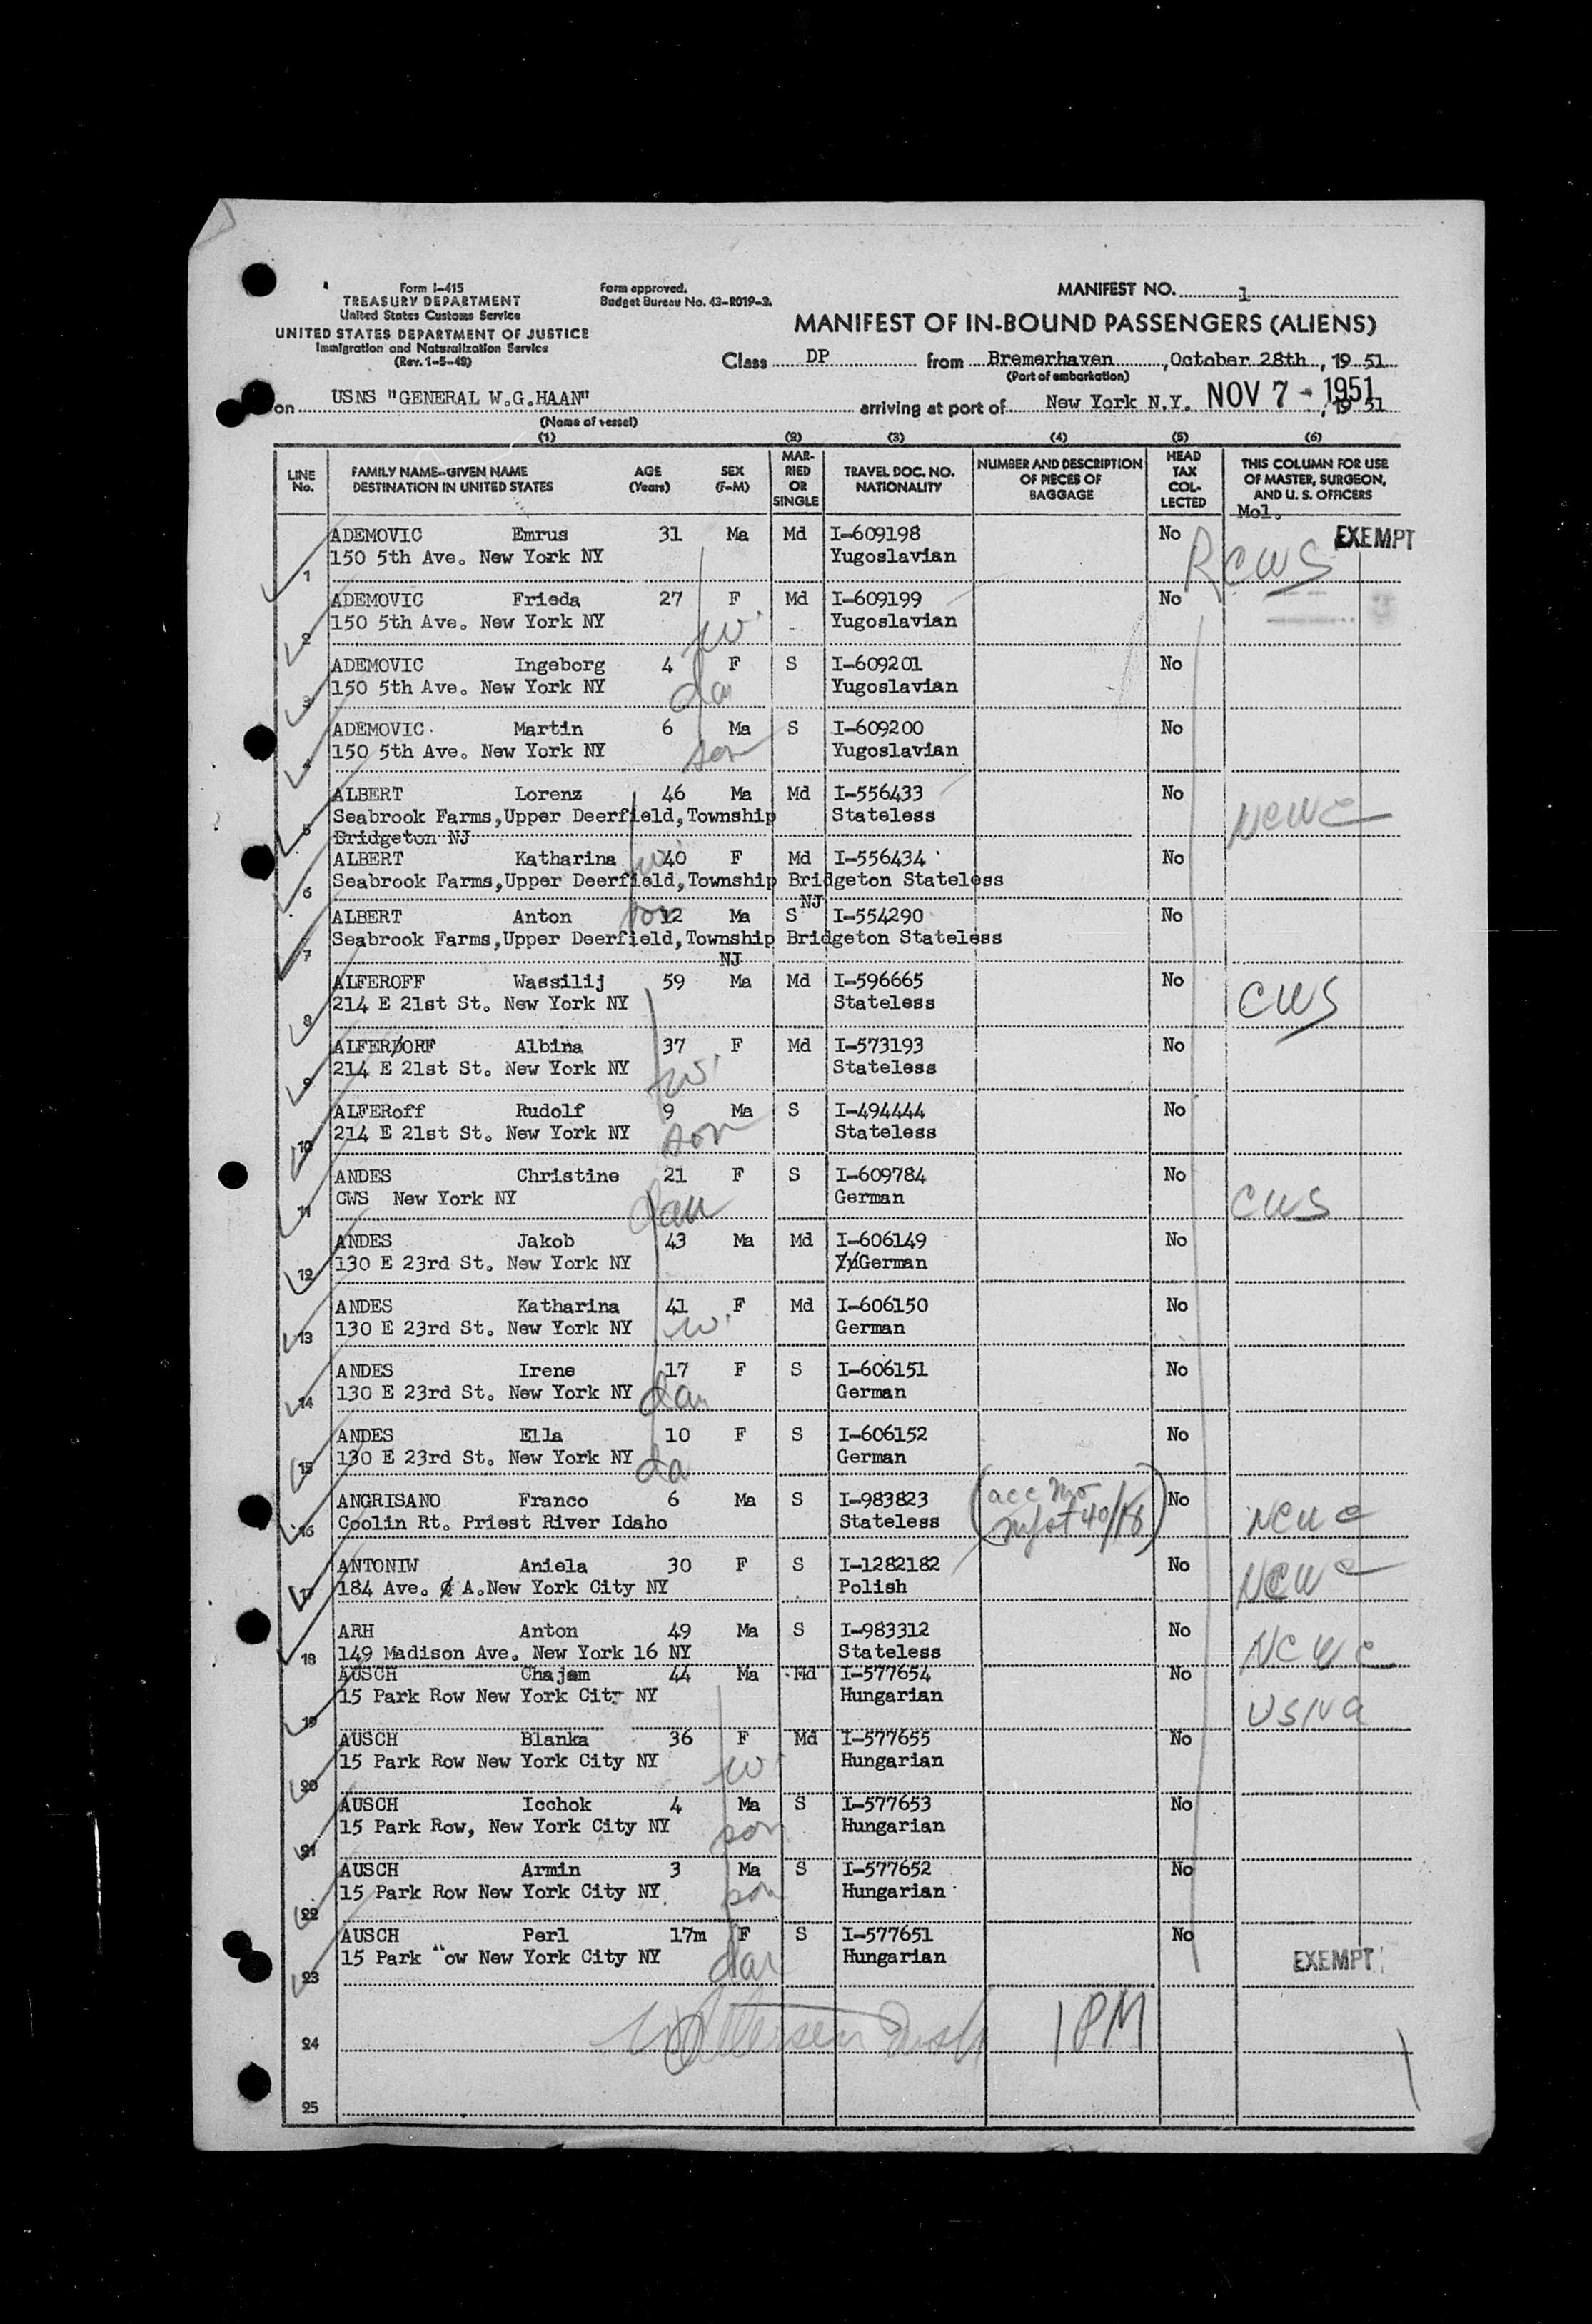 Form I-415
TREASURY DEPARTMENT
United States Customs Service
UNITED STATES DEPARTMENT OF JUSTICE
Immigration and Naturalization Service
(Rev. 1-5-48)
Form approved.
Budget Bureau No. 43-R019-3.
MANIFEST NO. 1
MANIFEST OF IN-BOUND PASSENGERS (ALIENS)
Class DP from Bremerhaven, October 28th, 19 51
(Port of embarkation)
on USNS "GENERAL W.G.HAAN" arriving at port of New York N.Y. NOV 7 - 1951, 19 51
(Name of vessel)
(1) (2) (3) (4) (5) (6)
LINE No. FAMILY NAME-GIVEN NAME DESTINATION IN UNITED STATES AGE (Years) SEX (F-M) MARRIED OR SINGLE TRAVEL DOC. NO. NATIONALITY NUMBER AND DESCRIPTION OF PIECES OF BAGGAGE HEAD TAX COLLECTED THIS COLUMN FOR USE OF MASTER, SURGEON, AND U. S. OFFICERS
Mol.
ADEMOVIC Emrus 31 Ma Md I-609198 No EXEMPT
1 150 5th Ave. New York NY Yugoslavian RCWS
ADEMOVIC Frieda 27 F Md I-609199 No
2 150 5th Ave. New York NY w. Yugoslavian
ADEMOVIC Ingeborg 4 F S I-609201 No
3 150 5th Ave. New York NY da Yugoslavian
ADEMOVIC Martin 6 Ma S I-609200 No
4 150 5th Ave. New York NY son Yugoslavian
ALBERT Lorenz 46 Ma Md I-556433 No
5 Seabrook Farms,Upper Deerfield,Township Stateless NCWC
Bridgeton NJ
ALBERT Katharina w. 40 F Md I-556434 No
6 Seabrook Farms,Upper Deerfield,Township Bridgeton Stateless
NJ
ALBERT Anton son 12 Ma S I-554290 No
7 Seabrook Farms,Upper Deerfield,Township Bridgeton Stateless
NJ
ALFEROFF Wassilij 59 Ma Md I-596665 No
8 214 E 21st St. New York NY Stateless CWS
ALFERDORF Albina 37 F Md I-573193 No
9 214 E 21st St. New York NY w. Stateless
ALFERoff Rudolf 9 Ma S I-494444 No
10 214 E 21st St. New York NY son Stateless
ANDES Christine 21 F S I-609784 No
11 CWS New York NY dau German CWS
ANDES Jakob 43 Ma Md I-606149 No
12 130 E 23rd St. New York NY German
ANDES Katharina 41 F Md I-606150 No
13 130 E 23rd St. New York NY w. German
ANDES Irene 17 F S I-606151 No
14 130 E 23rd St. New York NY dau German
ANDES Ella 10 F S I-606152 No
15 130 E 23rd St. New York NY da German
ANGRISANO Franco 6 Ma S I-983823 (acc No
16 Coolin Rt. Priest River Idaho Stateless 40/18) NCWC
ANTONIW Aniela 30 F S I-1282182 No
17 184 Ave. A.New York City NY Polish NCWC
ARH Anton 49 Ma S I-983312 No
18 149 Madison Ave. New York 16 NY Stateless NCWC
AUSCH Chajem 44 Ma Md I-577654 No
19 15 Park Row New York City NY Hungarian USNA
AUSCH Blanka 36 F Md I-577655 No
20 15 Park Row New York City NY w. Hungarian
AUSCH Icchok 4 Ma S I-577653 No
21 15 Park Row, New York City NY son Hungarian
AUSCH Armin 3 Ma S I-577652 No
22 15 Park Row New York City NY son Hungarian
AUSCH Perl 17m F S I-577651 No
23 15 Park "ow New York City NY dau Hungarian EXEMPT
24 1 PM
25